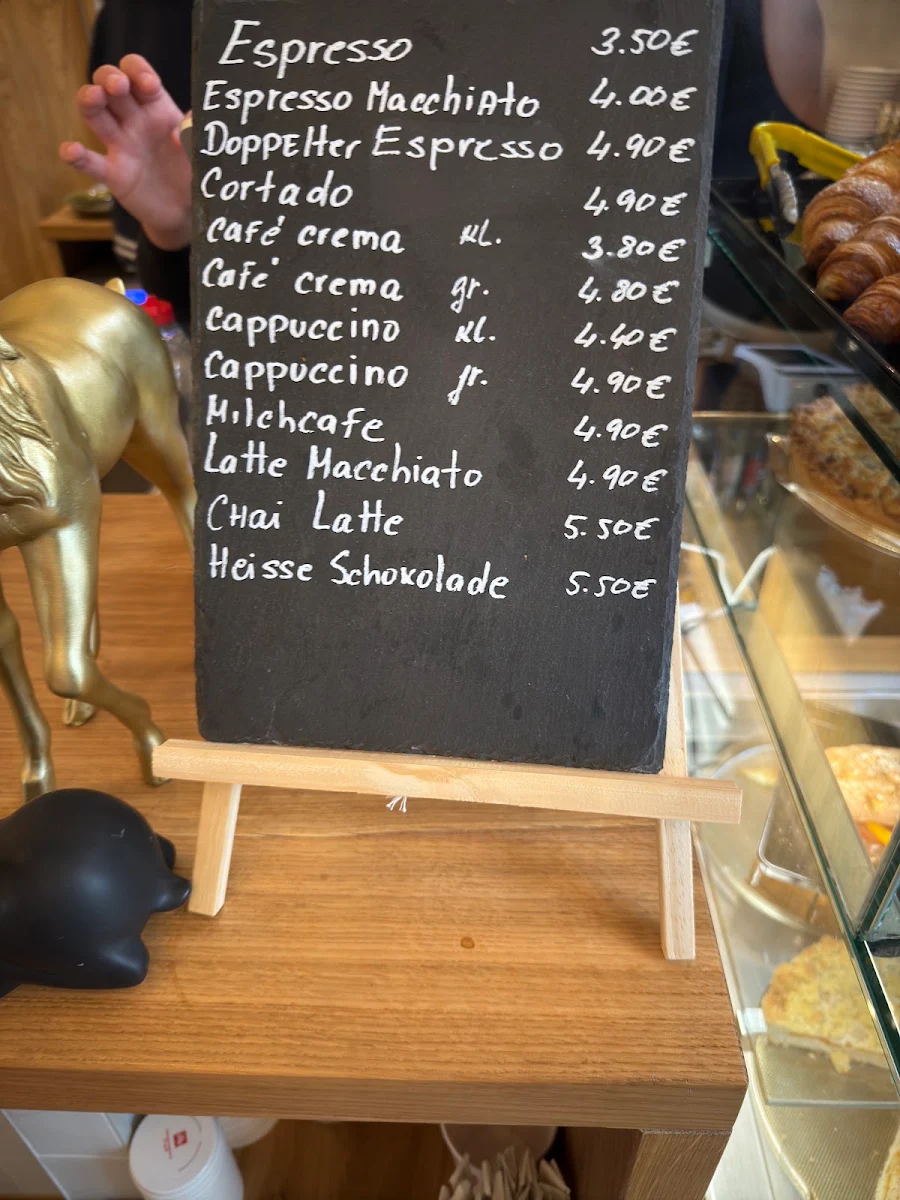 Espresso 3.50€
Espresso Macchiato 4.00€
Doppelter Espresso 4.90€
Cortado 4.90€
Café crema kl. 3.80€
Café crema gr. 4.80€
Cappuccino kl. 4.40€
Cappuccino gr. 4.90€
Milchcafe 4.90€
Latte Macchiato 4.90€
Chai Latte 5.50€
Heisse Schokolade 5.50€